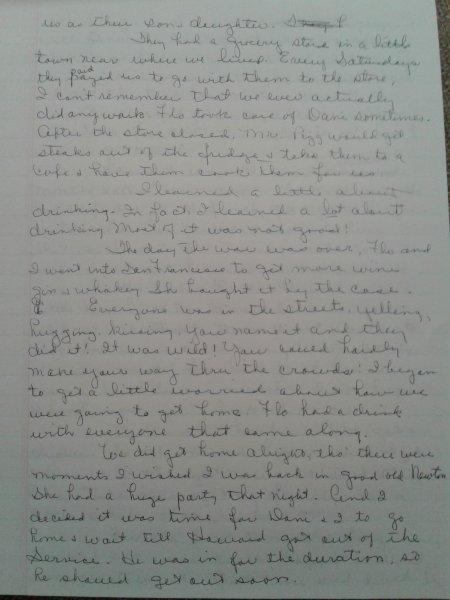 us as their son & daughter.
They had a grocery store in a little
town near where we lived. Every Saturdays
they paid us to go with them to the store,
I can't remember that we ever actually
did any work. Flo took care of Dane sometimes.
After the store closed, Mr. Pigg would get
steaks out of the fridge & take them to a
cafe & have them cook them for us
I learned a little about
drinking. In fact I learned a lot about
drinking Most of it was not good!
The day the war was over, Flo and
I went into San Francisco to get more wine
gin & whiskey She bought it by the case.
Everyone was in the streets, yelling,
hugging, kissing, you name it and they
did it! It was wild! You could hardly
make your way thru the crowds! I began
to get a little worried about how we
were going to get home. Flo had a drink
with everyone that came along.
We did get home alright, tho' there were
moments I wished I was back in good old Newton
She had a huge party that night. And I
decided it was time for Dane & I to go
home & wait till Howard got out of the
Service. He was in for the duration, so
he should get out soon.